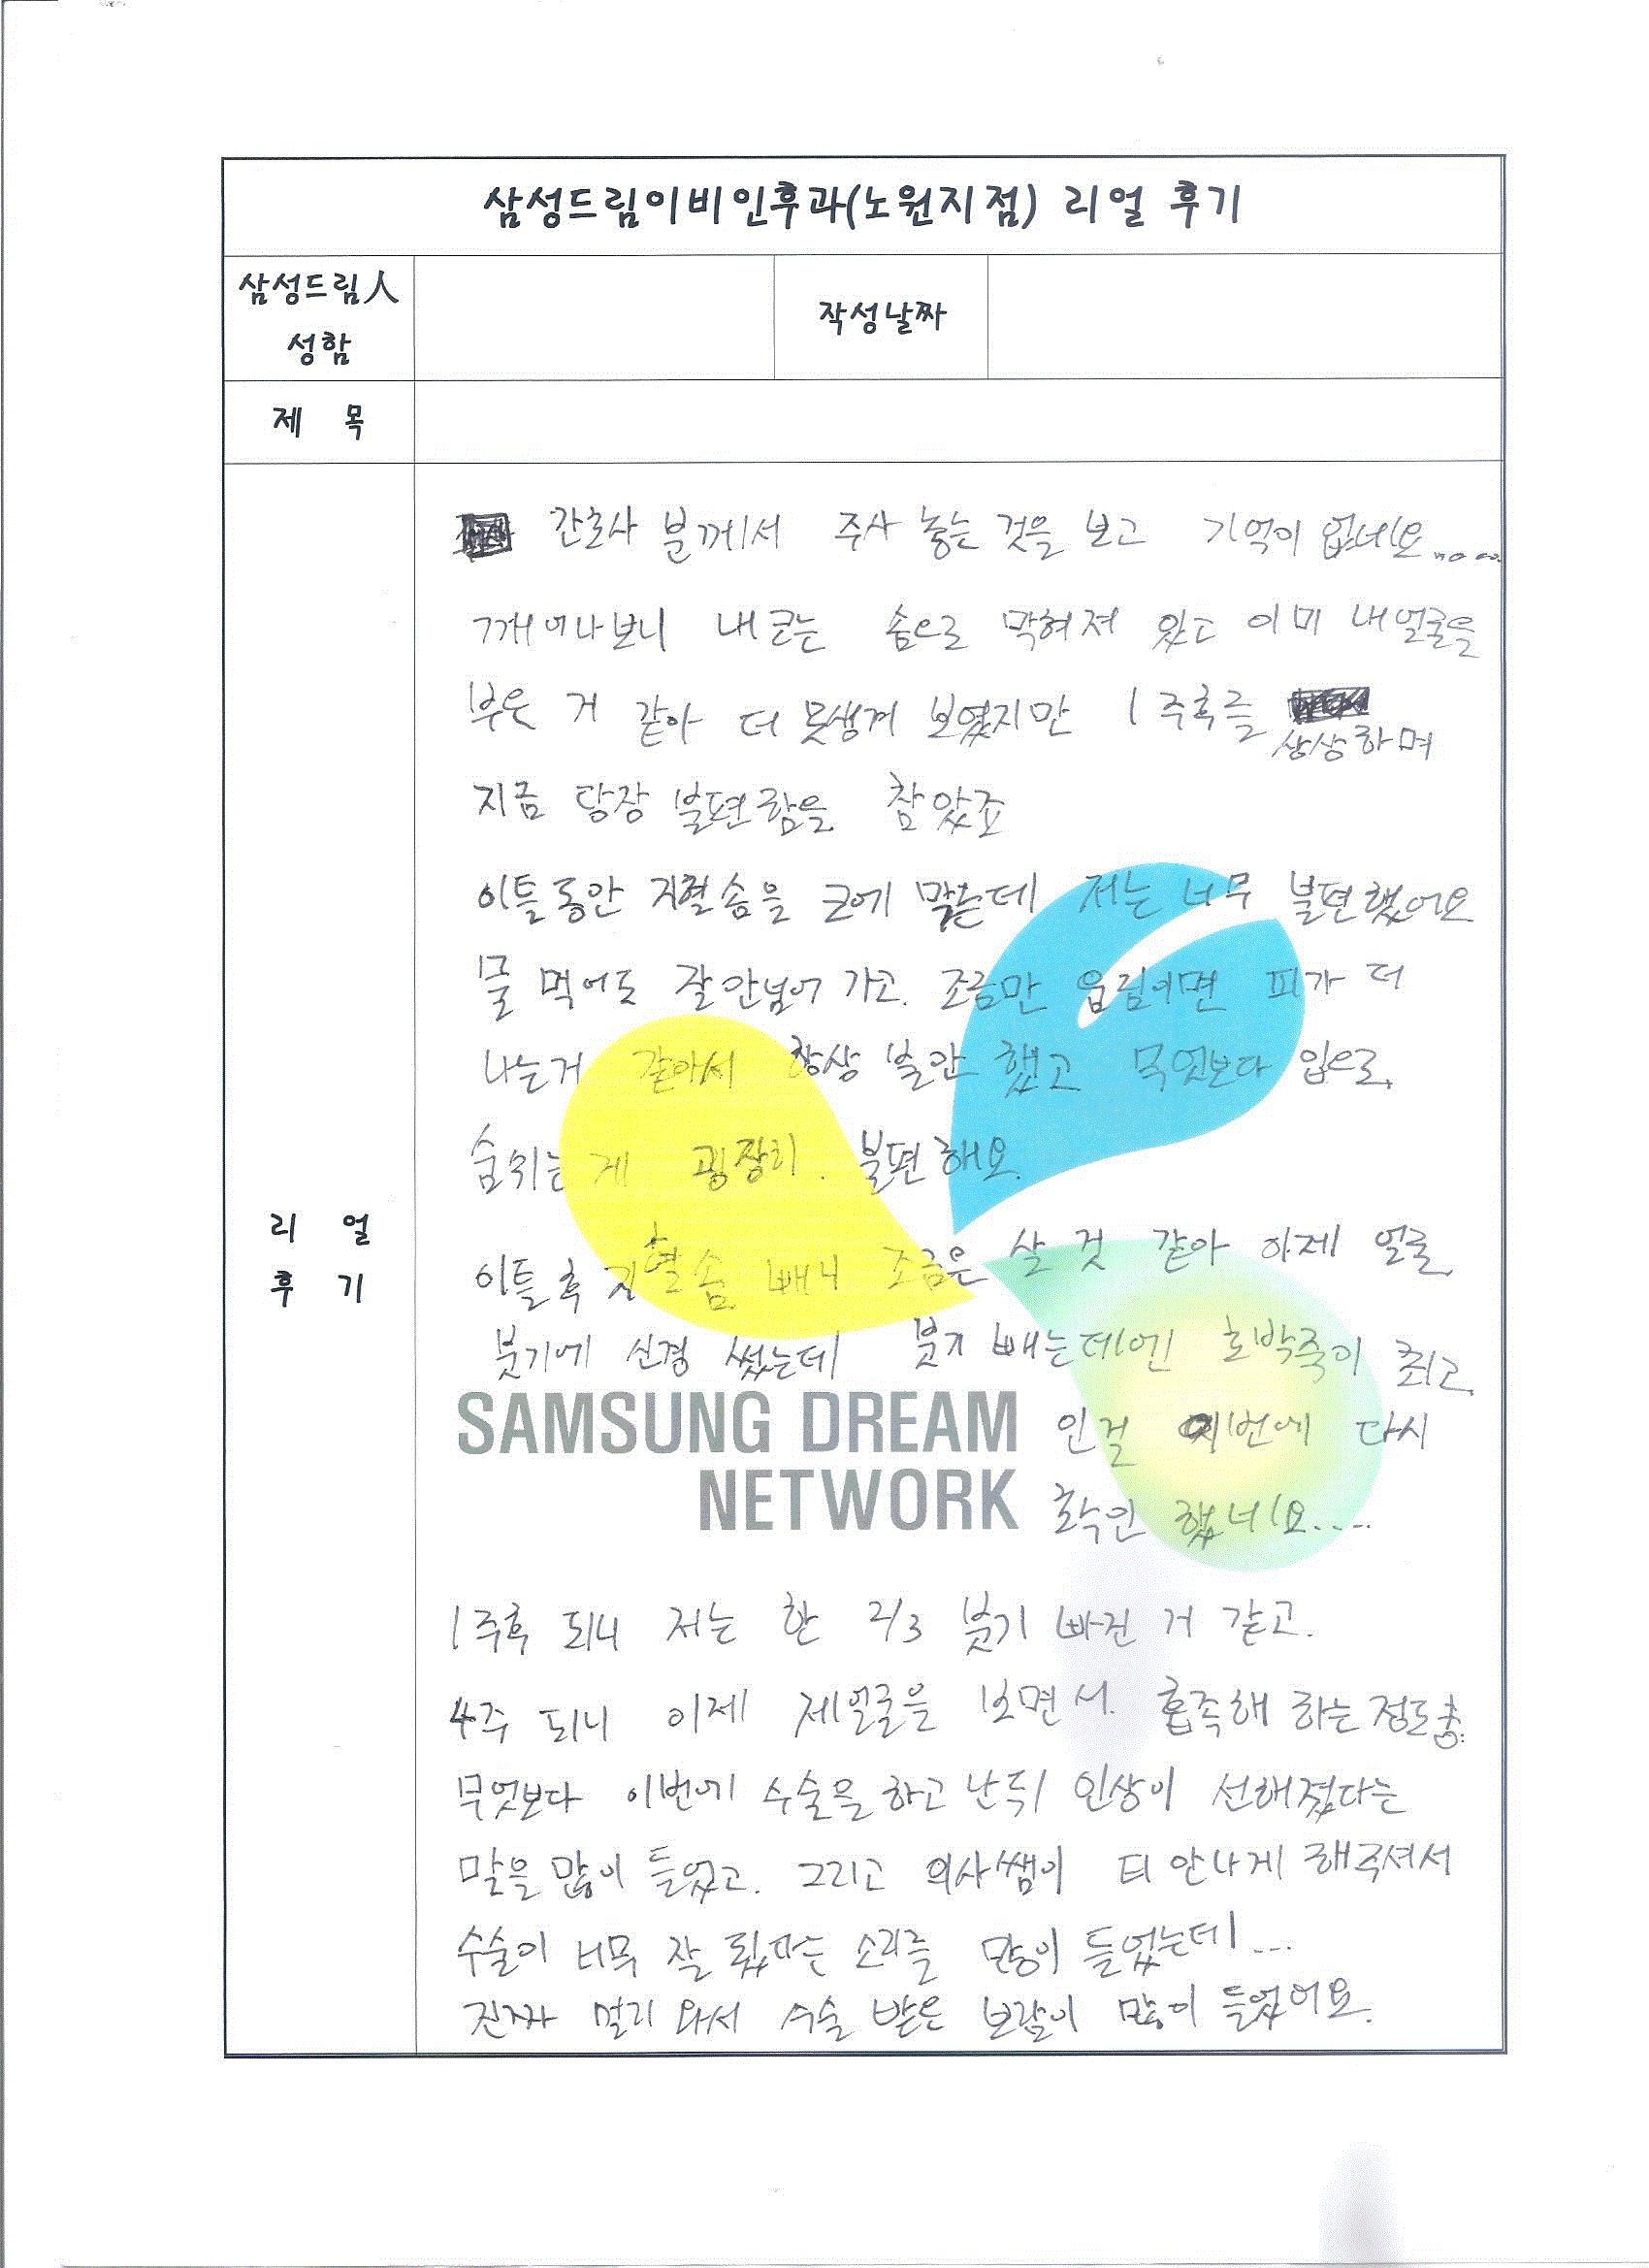 삼성드림이비인후과(노원지점) 리얼 후기
삼성드림人
성함
작성날짜
제 목
간호사 분께서 주사 놓는 것을 보고 기억이 없네요......
깨어나보니 내 코는 솜으로 막혀져 있고 이미 내 얼굴을
부은 거 같아 더 못생겨 보였지만 1주후를
상상하며
지금 당장 불편함을 참았죠
이틀동안 지혈솜을 코에 막는데 저는 너무 불편했어요
물 먹어도 잘 안넘어 가고. 조금만 움직이면 피가 더
나는거 같아서 항상 불안 했고 무엇보다 입으로
숨쉬는 게 굉장히. 불편해요.
이틀후 지혈솜 빼니 조금은 살 것 같아 이제 얼굴
붓기에 신경 썼는데 붓기 빼는데엔 호박죽이 최고
SAMSUNG DREAM
NETWORK
인걸 이번에 다시
확인 했네요....
1주후 되니 저는 한 2/3 붓기 빠진 거 같고.
4주 되니 이제 제얼굴을 보면서. 흡족해 하는 정도
무엇보다 이번에 수술을 하고 난뒤 인상이 선해졌다는
말을 많이 들었고. 그리고 의사쌤이 티 안나게 해주셔서
수술이 너무 잘 됬다는 소리를 많이 들었는데...
진짜 멀리 와서 수술 받은 보람이 많이 들었어요.
리 얼
후 기